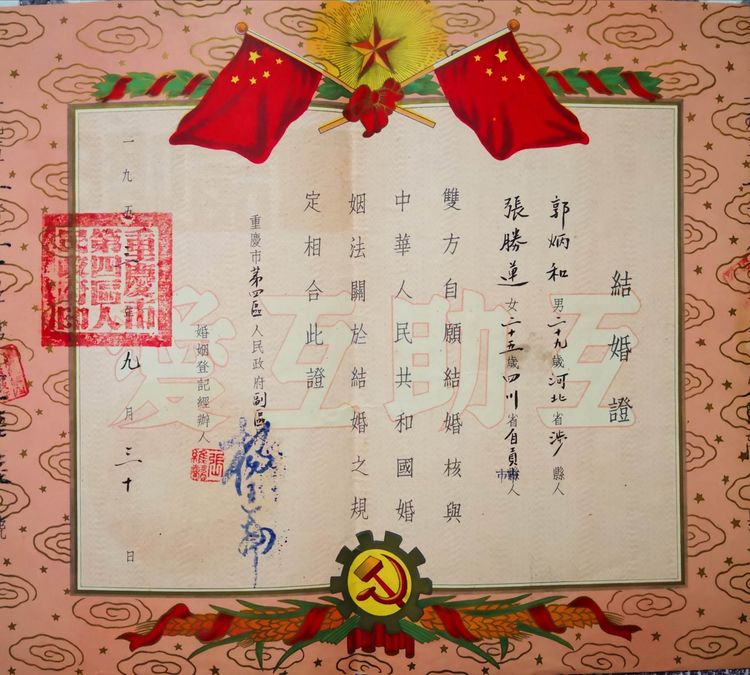 結婚證
郭炳和男二十九歲河北省涉縣人
張勝蓮女二十五歲四川省自貢市人
雙方自願結婚核與
中華人民共和國婚
姻法關於結婚之規
定相合此證
重慶市第四區人民政府副區
婚姻登記經辦人
一九五 年九月三十日
重慶市
第四區人
民政府印
互助互愛